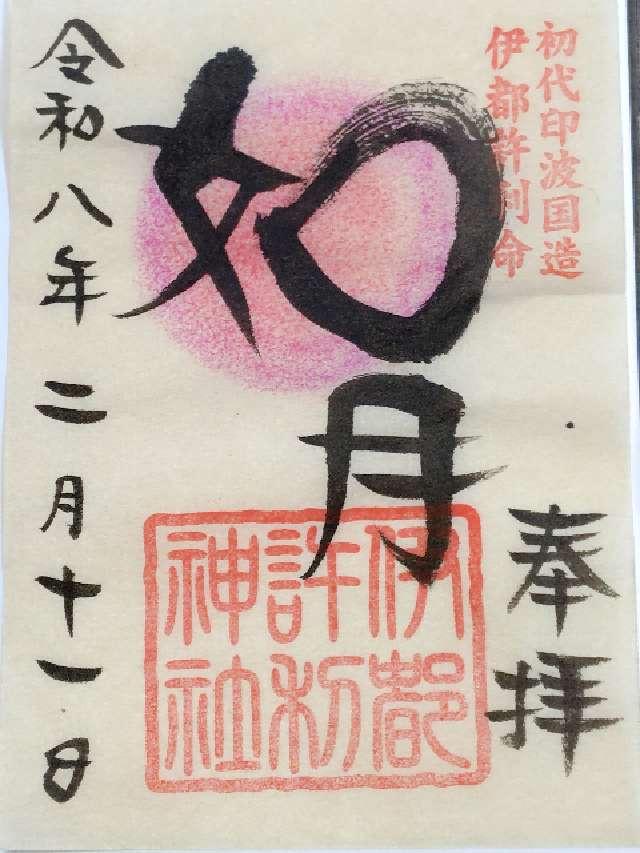 初代印波国造
伊都許利命
奉拝
如月
伊都
許利
神社
令和八年二月十一日